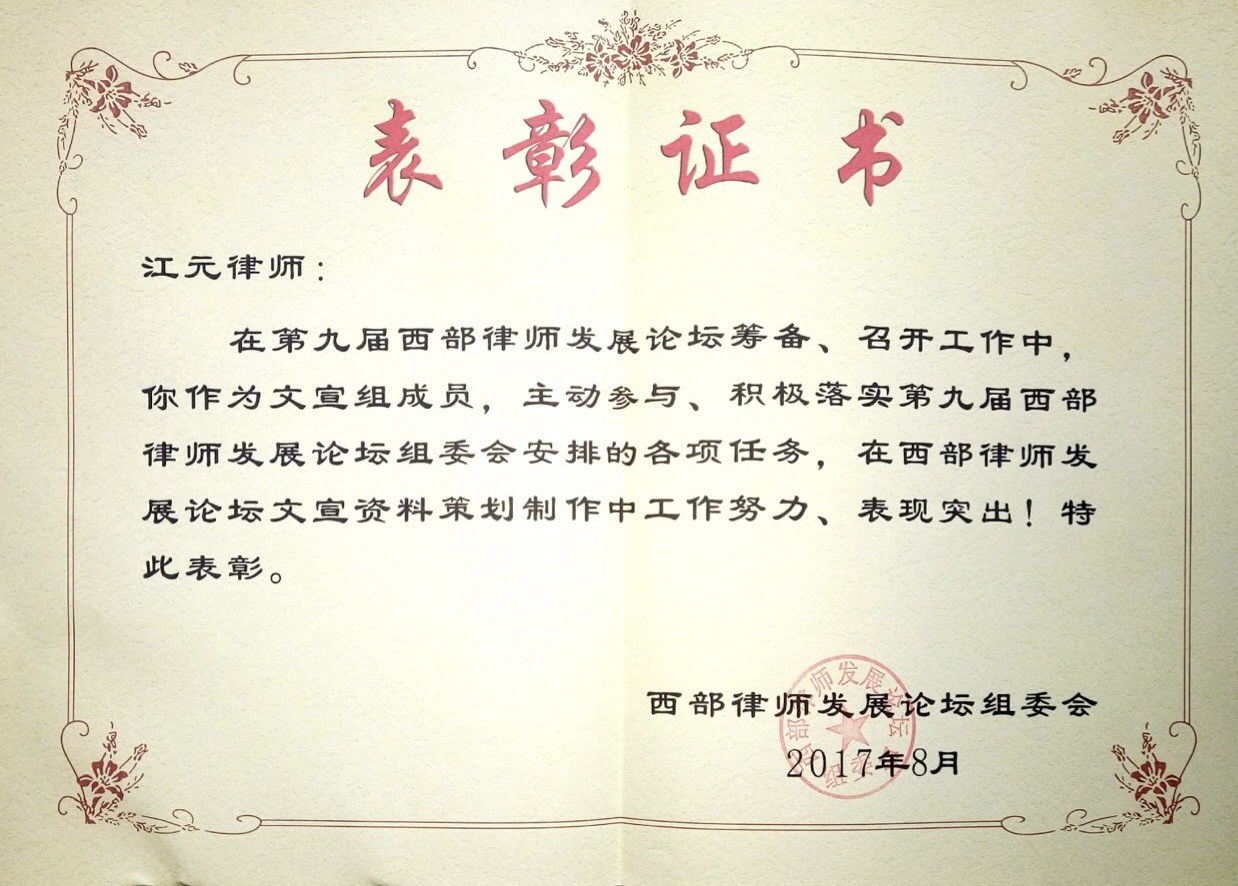 表彰证书
江元律师：
在第九届西部律师发展论坛筹备、召开工作中，
你作为文宣组成员，主动参与、积极落实第九届西部
律师发展论坛组委会安排的各项任务，在西部律师发
展论坛文宣资料策划制作中工作努力、表现突出！特
此表彰。
西部律师发展论坛组委会
2017年8月
西部律师发展论坛
组委会